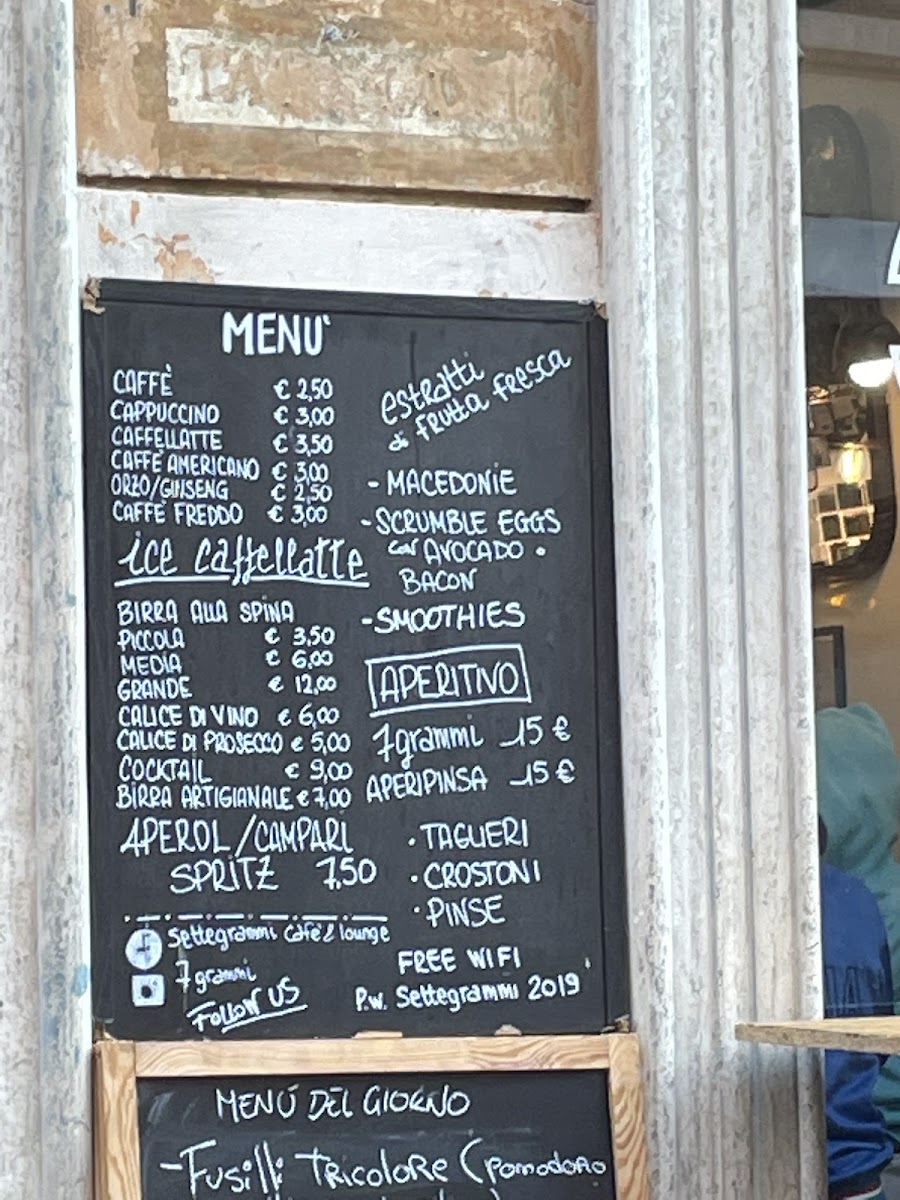 MENU'
CAFFÈ € 2,50
CAPPUCCINO € 3,00
CAFFELLATTE € 3,50
CAFFE' AMERICANO € 3,00
ORZO/GINSENG € 2,50
CAFFE' FREDDO € 3,00
ice caffellatte
BIRRA ALLA SPINA
PICCOLA € 3,50
MEDIA € 6,00
GRANDE € 12,00
CALICE DI VINO € 6,00
CALICE DI PROSECCO € 5,00
COCKTAIL € 9,00
BIRRA ARTIGIANALE € 7,00
APEROL/CAMPARI
SPRITZ 7,50
Settegrammi Cafè & lounge
7 grammi
Follow US
estratti
di frutta fresca
- MACEDONIE
- SCRUMBLE EGGS
con AVOCADO •
BACON
- SMOOTHIES
APERITIVO
7grammi 15 €
APERIPINSA 15 €
• TAGLIERI
• CROSTONI
• PINSE
FREE WIFI
P.w. Settegrammi 2019'
MENÚ DEL GIORNO
- Fusilli TRICOLORE (POMODORO